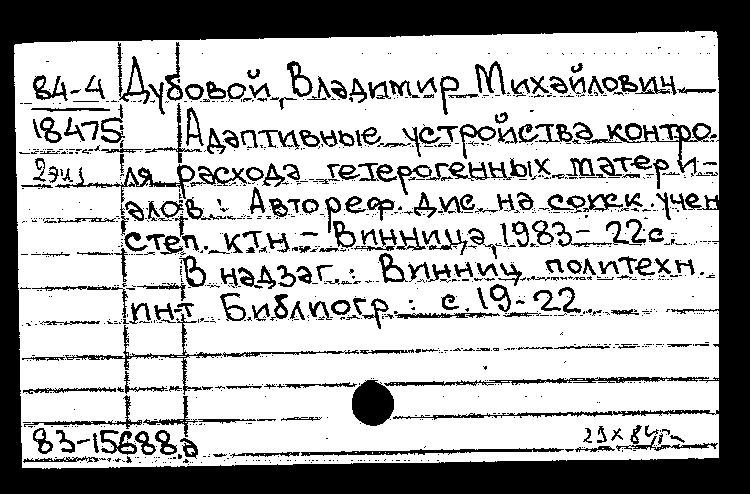 84-4 Дубовой, Владимир Михайлович
18475 Адаптивные устройства контро-
2 экз ля расхода гетерогенных матери-
алов: Автореф. дис. на соиск. учен
степ. ктн - Винница, 1983 - 22с.
В надзаг.: Винниц политехн
ин-т Библиогр.: с. 19-22
83-15688а
29 X 84г